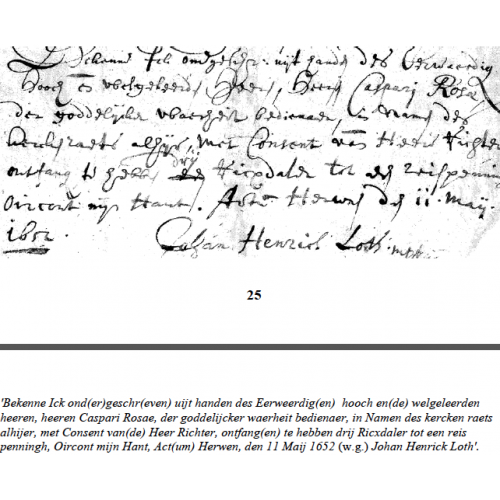 Bekenne Ick ondgeschr. uijt handen des Eerweerdig
hooch en welgeleerd heere, heere Caspari Rosae
der goddelijcke waerheit bedienaer, in Namen des
kercken raets alhijr, met Consent van Heer Richter
ontfang te hebb drij Ricxdaler tot een reis penningh
Oircont mijn Hant. Act. Herwen den 11 Maij
1652. Johan Henrich Loth.
25
'Bekenne Ick ond(er)geschr(even) uijt handen des Eerweerdig(en)  hooch en(de) welgeleerden
heeren, heeren Caspari Rosae, der goddelijcker waerheit bedienaer, in Namen des kercken raets
alhijer, met Consent van(de) Heer Richter, ontfang(en) te hebben drij Ricxdaler tot een reis
penningh, Oircont mijn Hant, Act(um) Herwen, den 11 Maij 1652 (w.g.) Johan Henrick Loth'.